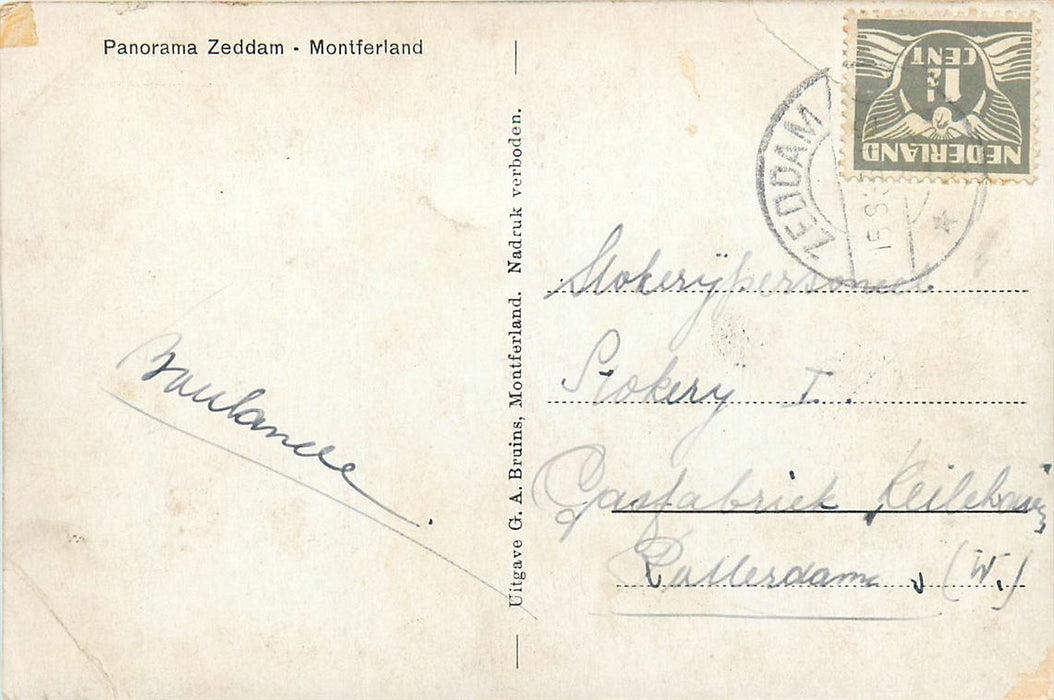 Panorama Zeddam - Montferland
Uitgave G. A. Bruins, Montferland. Nadruk verboden.
NEDERLAND
1½
CENT
ZEDDAM
Stokerijpersoneel
Stokerij I.
Gasfabriek Keilehaven
Rotterdam. (W.)